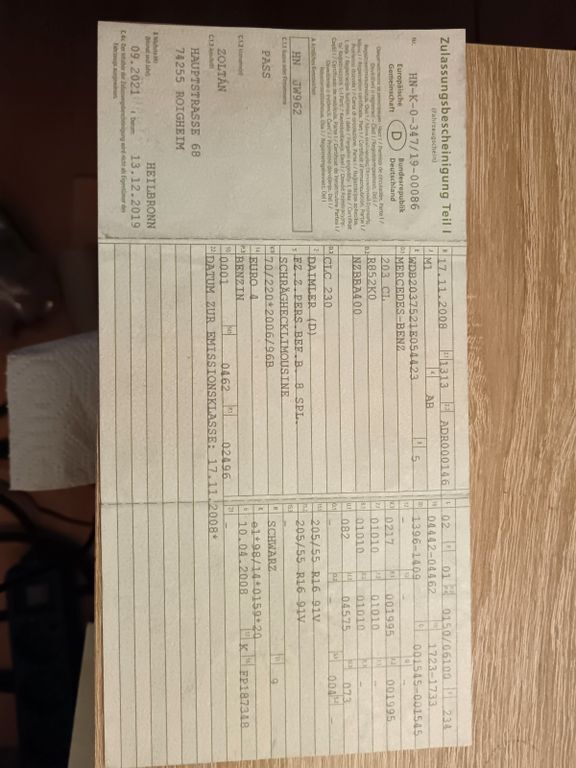 Zulassungsbescheinigung Teil I
(Fahrzeugschein)
Nr. HN-K-0-347/19-00086
Europäische Gemeinschaft
D
Bundesrepublik Deutschland
HN JW962
C.1.1
PASS
C.1.2
ZOLTÁN
C.1.3
HAUPTSTRASSE 68
74255 ROIGHEIM
09.2021
HEILBRONN
13.12.2019
B 17.11.2008 2.1 1313 2.2 ADR000146
J M1 4 AB
E WDB2037521E054423 3 5
D.1 MERCEDES-BENZ
D.2 203 CL
R852K0
NZBBA400
D.3 CLC 230
2 DAIMLER (D)
5 FZ.Z.PERS.BEF.B. 8 SPL.
SCHRÄGHECKLIMOUSINE
V.9 70/220*2006/96B
14 EURO 4
P.3 BENZIN
10 0001 14.1 0462 P.1 02496
22 DATUM ZUR EMISSIONSKLASSE: 17.11.2008*
L 02 9 01 P.2 0150/06100 T 234
18 04442-04462 19 1723-1733
20 1396-1409 G 001545-001545
12 - 13 - Q -
V.7 0217 F.1 001995 F.2 001995
7.1 01010 7.2 01010 7.3 -
8.1 01010 8.2 01010 8.3 -
U.1 082 U.2 04575 U.3 073
O.1 - O.2 - S.1 004 S.2
15.1 205/55 R16 91V
15.2 205/55 R16 91V
15.3 -
R SCHWARZ 11 9
K e1*98/14*0159*20
6 10.04.2008 17 K 16 FP187348
21 -